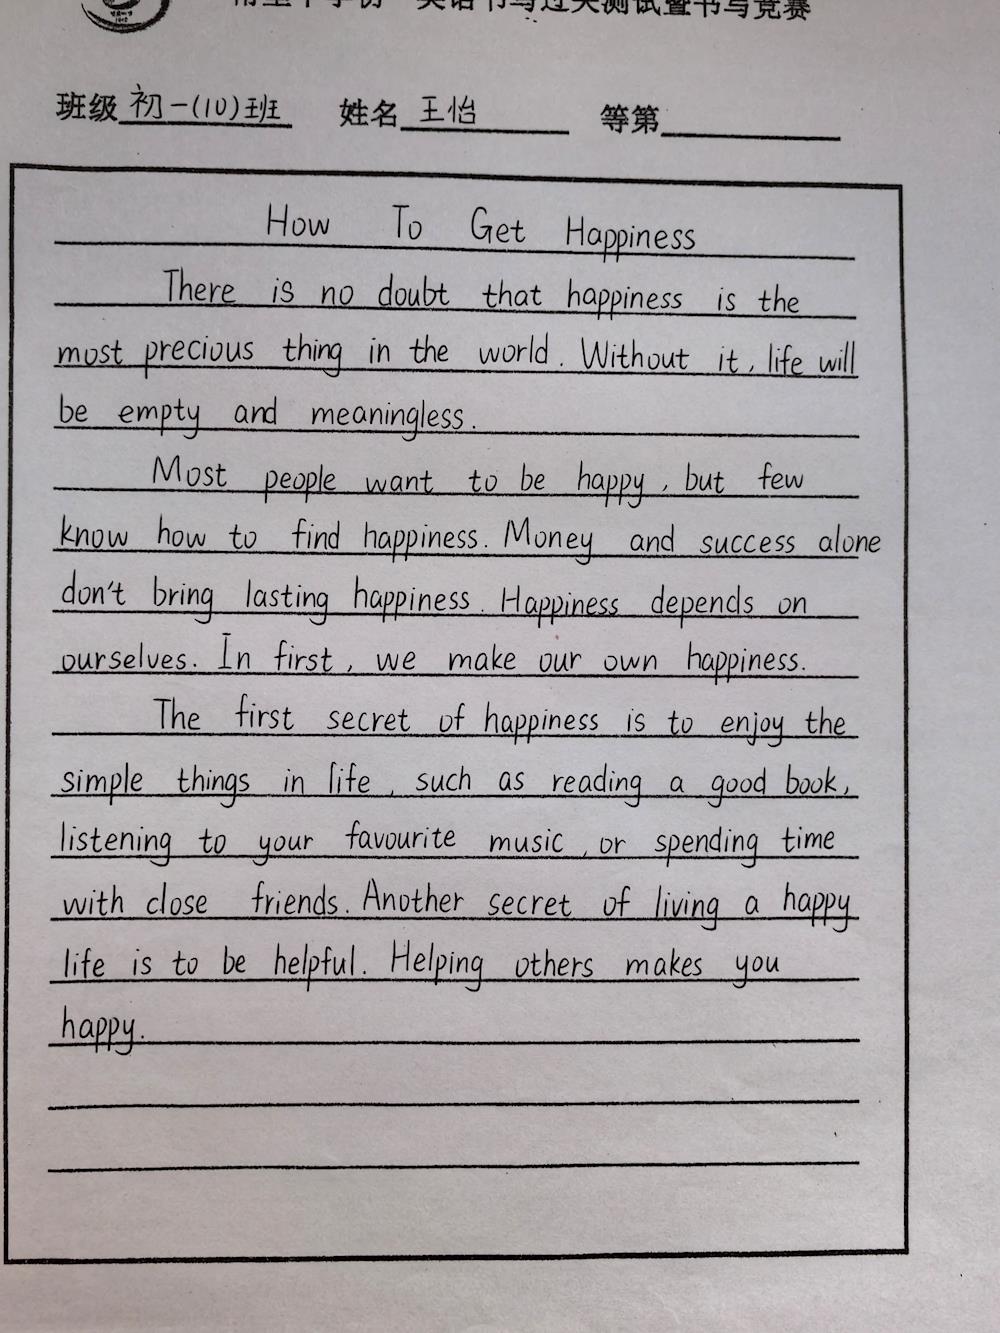 英语书写过关测试暨书写竞赛
班级 初一(10)班 姓名 王怡 等第
How To Get Happiness
There is no doubt that happiness is the
most precious thing in the world. Without it, life will
be empty and meaningless.
Most people want to be happy, but few
know how to find happiness. Money and success alone
don't bring lasting happiness. Happiness depends on
ourselves. In first, we make our own happiness.
The first secret of happiness is to enjoy the
simple things in life, such as reading a good book,
listening to your favourite music, or spending time
with close friends. Another secret of living a happy
life is to be helpful. Helping others makes you
happy.